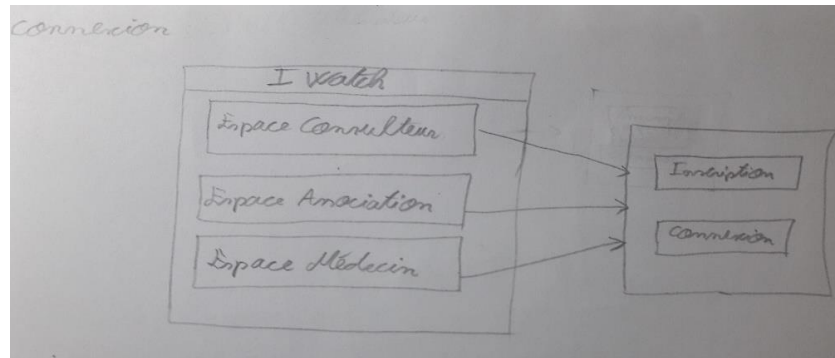 Connexion
I Watch
Espace Consulteur
Espace Association
Espace Médecin
Inscription
Connexion